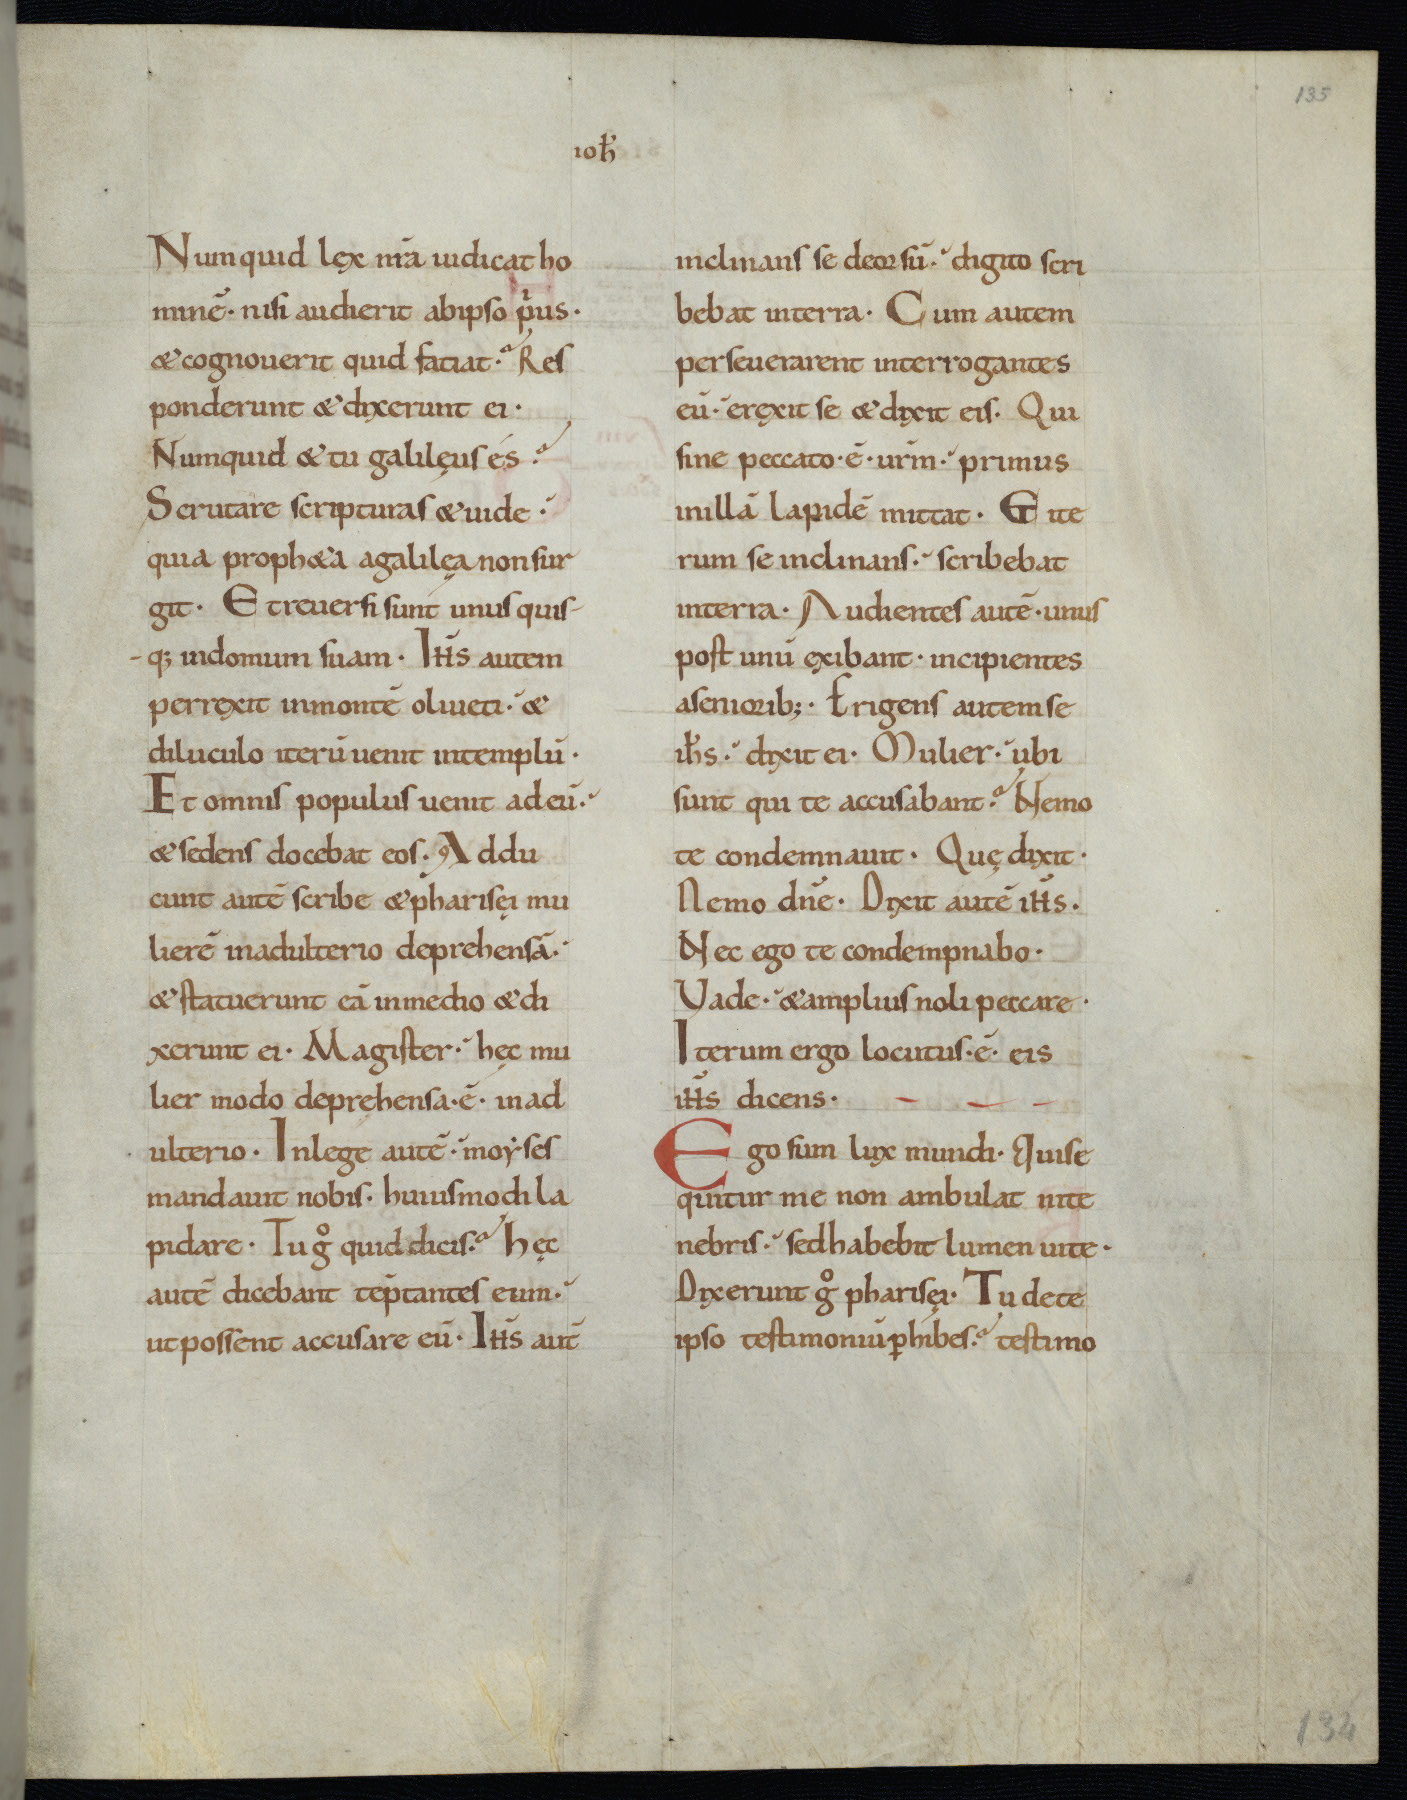 135
ioħ
Numquid lęx nr̄a iudicat ho
minē· nisi audierit abipso p̄us·
& cognouerit quid fatiat· Res
ponderunt & dixerunt ei·
Numquid & tu galilęus és
Scrutare scripturas & uide·
quia proph&a agalilęa non sur
git· Et reuersi sunt unus quis-
-q; indomum suam· Iħs autem
perręxit inmontē oliueti· &
diluculo iterū uenit intemplū·
Et omnis populus uenit adeū·
& sedens docebat eos· Addu
cunt autē scribe & pharisęi mu
lierē inadulterio deprehensā·
& statuerunt eā inmedio & di
xerunt ei· Magister· hęc mu
lier modo depręhensa·ē· inad
ulterio· Inlege autē· moẏses
mandauit nobis· huiusmodi la
pidare· Tu g̊ quid dicis· hęc
autē dicebant tēptantes eum·
ut possent accusare eū· Iħs aut̄
inclinans se deorsū· digito scri
bebat interra· Cum autem
perseuerarent interrogantes
eū· eręxit se & dixit eis· Qui
sine peccato·ē·ur̄m· primus
inillā lapidē mittat· Et ite
rum se inclinans· scribebat
interra· Audientes autē· unus
post unū ęxibant· incipientes
asenioribꝫ· Erigens autem se
iħs· dixit ei· Mulier· ubi
sunt qui te accusabant· Nemo
te condemnauit· Quę dixit·
Nemo dn̄e· Dixit autē iħs·
Nec ego te condempnabo·
Vade· & amplius noli peccare·
Iterum ergo locutus·ē· eis
iħs dicens·
Ego sum lux mundi· Qui se
quitur me non ambulat inte
nebris· sed habebit lumen uite·
Dixerunt g̊ pharisęi· Tu dete
ipso testimoniū ꝑhibes· testimo
134